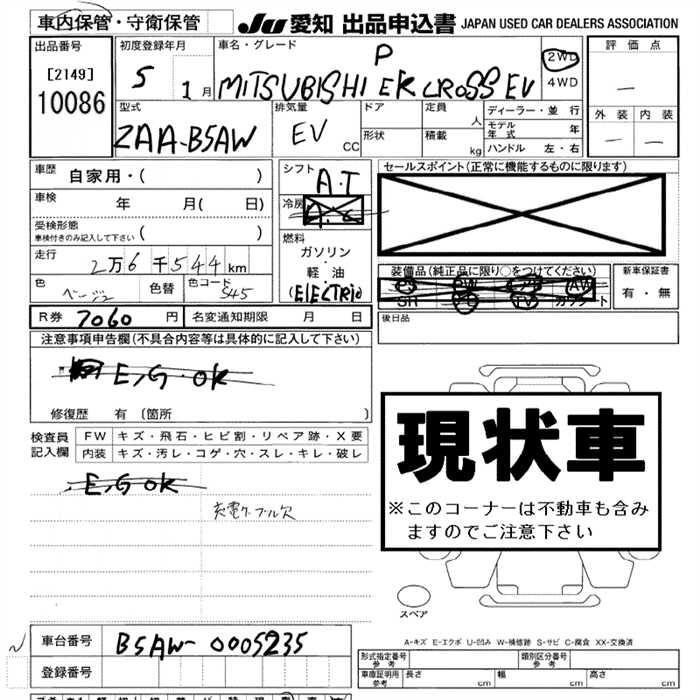 車内保管・守衛保管
JU 愛知 出品申込書 JAPAN USED CAR DEALERS ASSOCIATION
出品番号
[2149]
10086
初度登録年月
5 1月
車名・グレード
P
MITSUBISHI EK CROSS EV
2WD
4WD
評価点
—
外装 内装
— —
型式
ZAA-B5AW
排気量
EV CC
ドア
形状
定員 人
積載 kg
ディーラー・並行
モデル年式 年
ハンドル 左・右
車歴 自家用・( )
車検 年 月( 日)
受検形態
車検付きのみ記入して下さい ( )
走行
2万6千544km
色 ベージュ 色替 色コード 545
シフト
A.T
冷房
A.C
燃料
ガソリン
・
軽油
(ElECTRIC)
セールスポイント(正常に機能するものに限ります)
装備品(純正品に限り○をつけてください)
SR PS PW AW
SH TV カワシート
新車保証書
有・無
後日品
R券 7060 円 名変通知期限 月 日
注意事項申告欄(不具合内容等は具体的に記入して下さい)
E,G・OK
修復歴 有(箇所 )
検査員
記入欄
FW キズ・飛石・ヒビ割・リペア跡・X要
内装 キズ・汚レ・コゲ・穴・スレ・キレ・破レ
E,G OK
充電ケーブル欠
現状車
※このコーナーは不動車も含み
ますのでご注意下さい
スペア
A-キズ E-エクボ U-凹み W-補修跡 S-サビ C-腐食 XX-交換済
車台番号 B5AW-0005235
登録番号
形式指定番号
参考
類別区分番号
参考
車庫証明用
参考
長さ cm 幅 cm 高さ cm